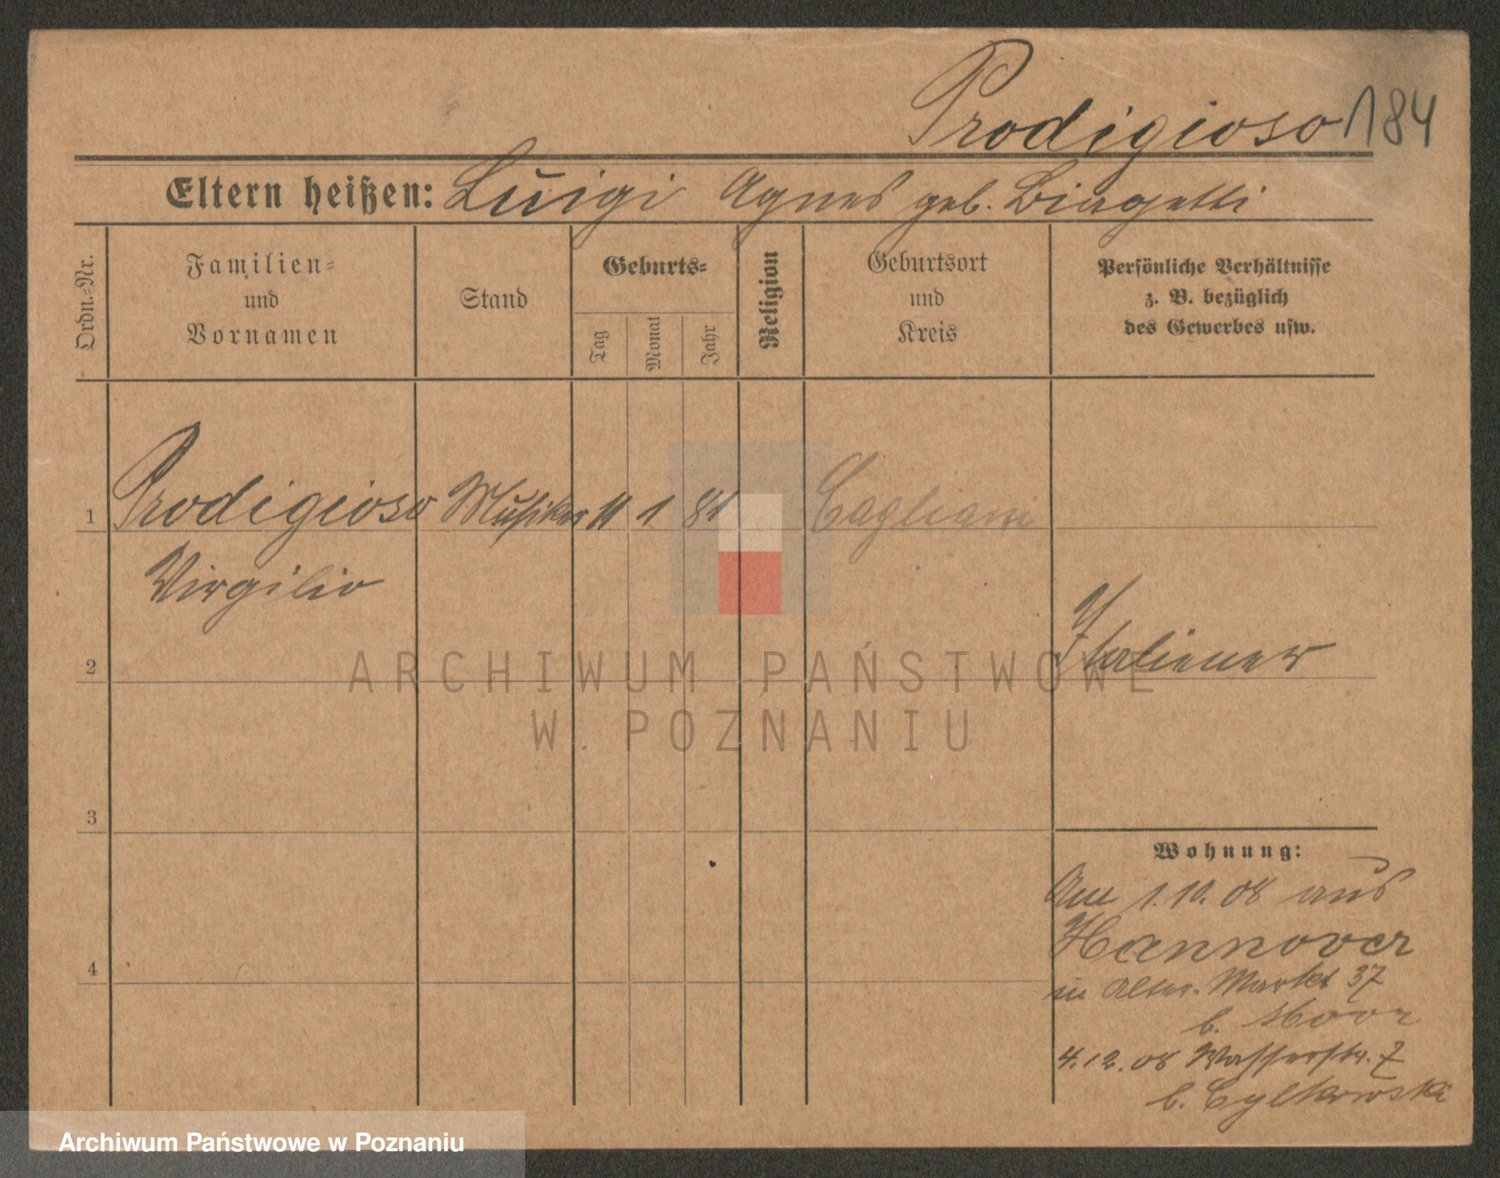 Prodigioso 184
Eltern heißen: Luigi Agnes geb. Biagetti
Ordn.-Nr.
Familien-
und
Vornamen
Stand
Geburts-
Tag
Monat
Jahr
Religion
Geburtsort
und
Kreis
Persönliche Verhältnisse
z. B. bezüglich
des Gewerbes usw.
1 Prodigioso Musiker 11 1 81 Cagliari
Virgilio
2 Italiener
3
Wohnung:
Am 1.10.08 aus
Hannover
4
in Alter. Markt 37
b.
4.12.08 Wasserstr. 7
b. Cylkowski
ARCHIWUM PAŃSTWOWE
W POZNANIU
Archiwum Państwowe w Poznaniu